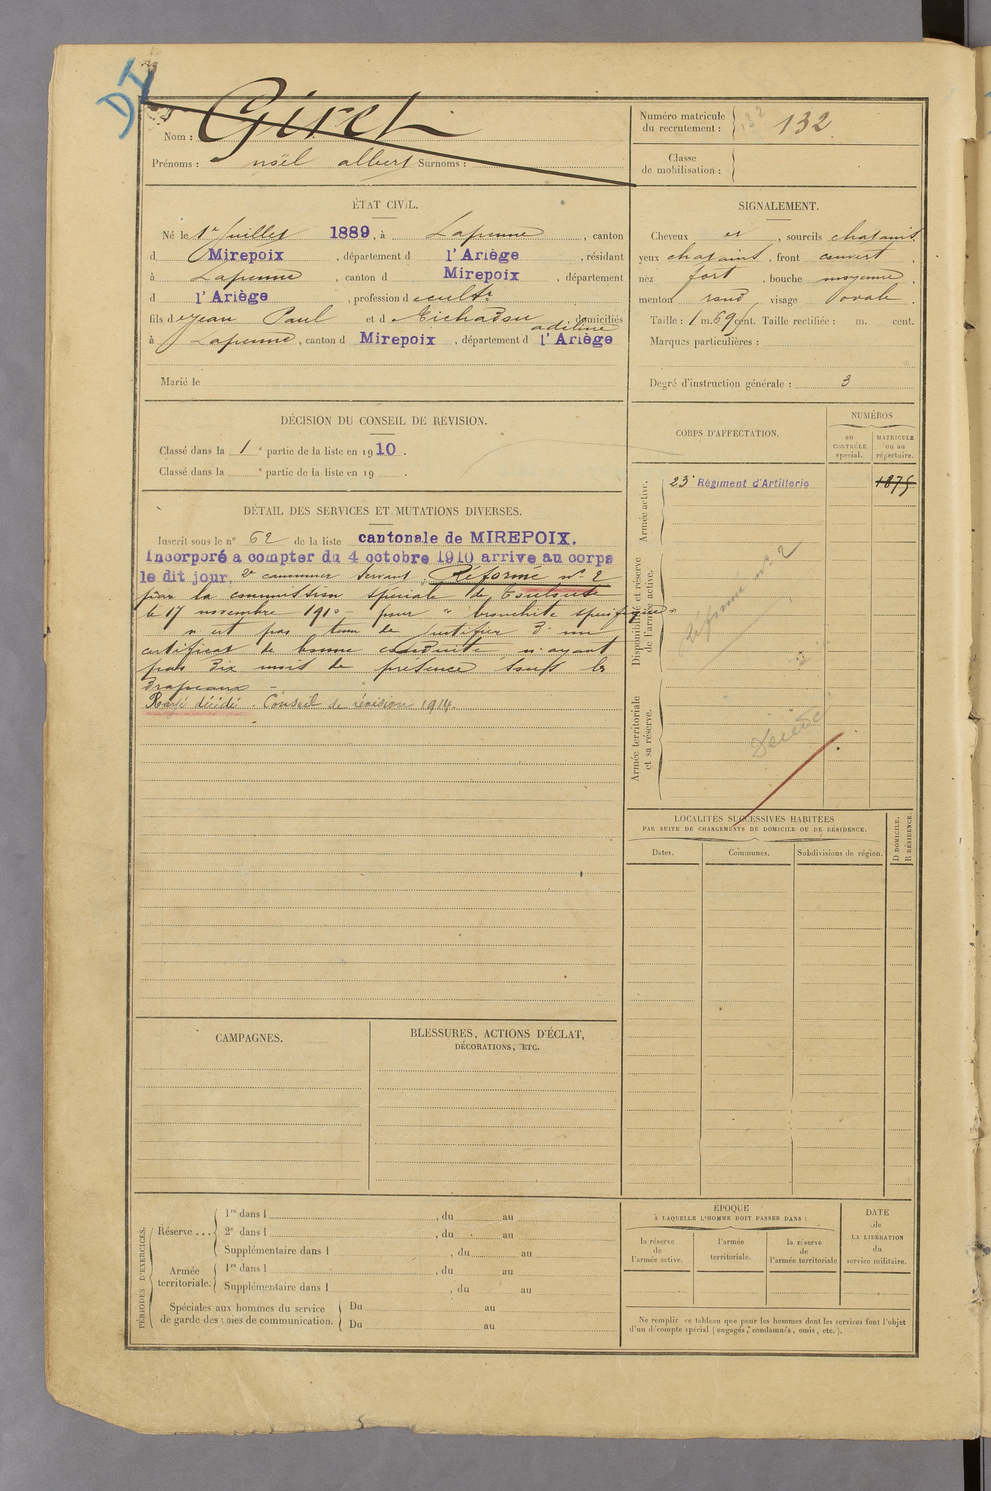 DI
Nom : Giret
Prénoms : noël albert Surnoms :
Numéro matricule du recrutement : 132 132
Classe de mobilisation :
ÉTAT CIVIL.
Né le 1er Juillet 1889, à Lapenne, canton
d Mirepoix, département d l'Ariège, résidant
à Lapenne, canton d Mirepoix, département
d l'Ariège, profession d cultr
fils d Jean Paul et d adeline domiciliés
à Lapenne, canton d Mirepoix, département d l'Ariège
Marié le
SIGNALEMENT.
Cheveux et, sourcils chatains,
yeux chatains, front couvert,
nez fort, bouche moyenne,
menton rond, visage ovale.
Taille : 1 m. 69 cent. Taille rectifiée : m. cent.
Marques particulières :
Degré d'instruction générale : 3
DÉCISION DU CONSEIL DE RÉVISION.
Classé dans la 1e partie de la liste en 1910.
Classé dans la e partie de la liste en 19 .
CORPS D'AFFECTATION.
NUMÉROS
au CONTRÔLE spécial.
MATRICULE ou au répertoire.
Armée active.
23e Régiment d'Artillerie 1875
Disponibilité et réserve de l'armée active.
Réforme n° 2
Armée territoriale et sa réserve.
Décédé
DÉTAIL DES SERVICES ET MUTATIONS DIVERSES.
Inscrit sous le n° 62 de la liste cantonale de MIREPOIX.
Incorporé à compter du 4 octobre 1910 arrivé au corps
le dit jour, 2e canonnier servant, Réformé n° 2
par la commission spéciale de Toulouse
le 17 novembre 1910 - pour " bronchite spécifique "
n'est pas tenu de justifier d'un
certificat de bonne conduite n'ayant
pas dix mois de présence sous les
drapeaux -
Rayé décédé. Conseil de révision 1914.
LOCALITÉS SUCCESSIVES HABITÉES
PAR SUITE DE CHANGEMENTS DE DOMICILE OU DE RÉSIDENCE.
Dates.
Communes.
Subdivisions de région.
D DOMICILE.
R RÉSIDENCE.
CAMPAGNES.
BLESSURES, ACTIONS D'ÉCLAT,
DÉCORATIONS, ETC.
PÉRIODES D'EXERCICES.
Réserve ...
1re dans l , du au
2e dans l , du au
Supplémentaire dans l , du au
Armée territoriale.
1re dans l , du au
Supplémentaire dans l , du au
Spéciales aux hommes du service
de garde des voies de communication.
Du au
Du au
ÉPOQUE
À LAQUELLE L'HOMME DOIT PASSER DANS :
la réserve de l'armée active.
l'armée territoriale.
la réserve de l'armée territoriale
DATE de LA LIBÉRATION du service militaire.
Ne remplir ce tableau que pour les hommes dont les services font l'objet
d'un décompte spécial (engagés, condamnés, omis, etc.).